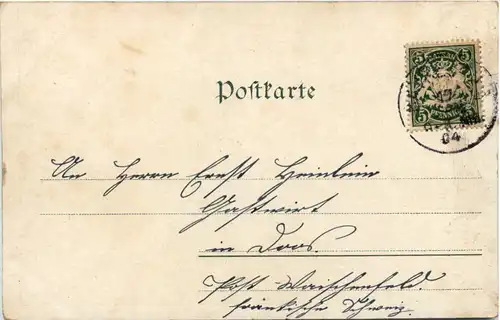 Postkarte
5 5
04
An Herrn Ernst Heinlein
Gastwirt
in Doos.
Post Waischenfeld.
fränkische Schweiz